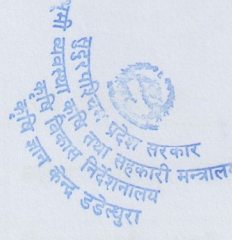 सुदूरपश्चिम प्रदेश सरकार
भूमी व्यवस्था कृषि तथा सहकारी मन्त्राल
कृषि विकास निर्देशनालय
कृषि ज्ञान केन्द्र डडेल्धुरा